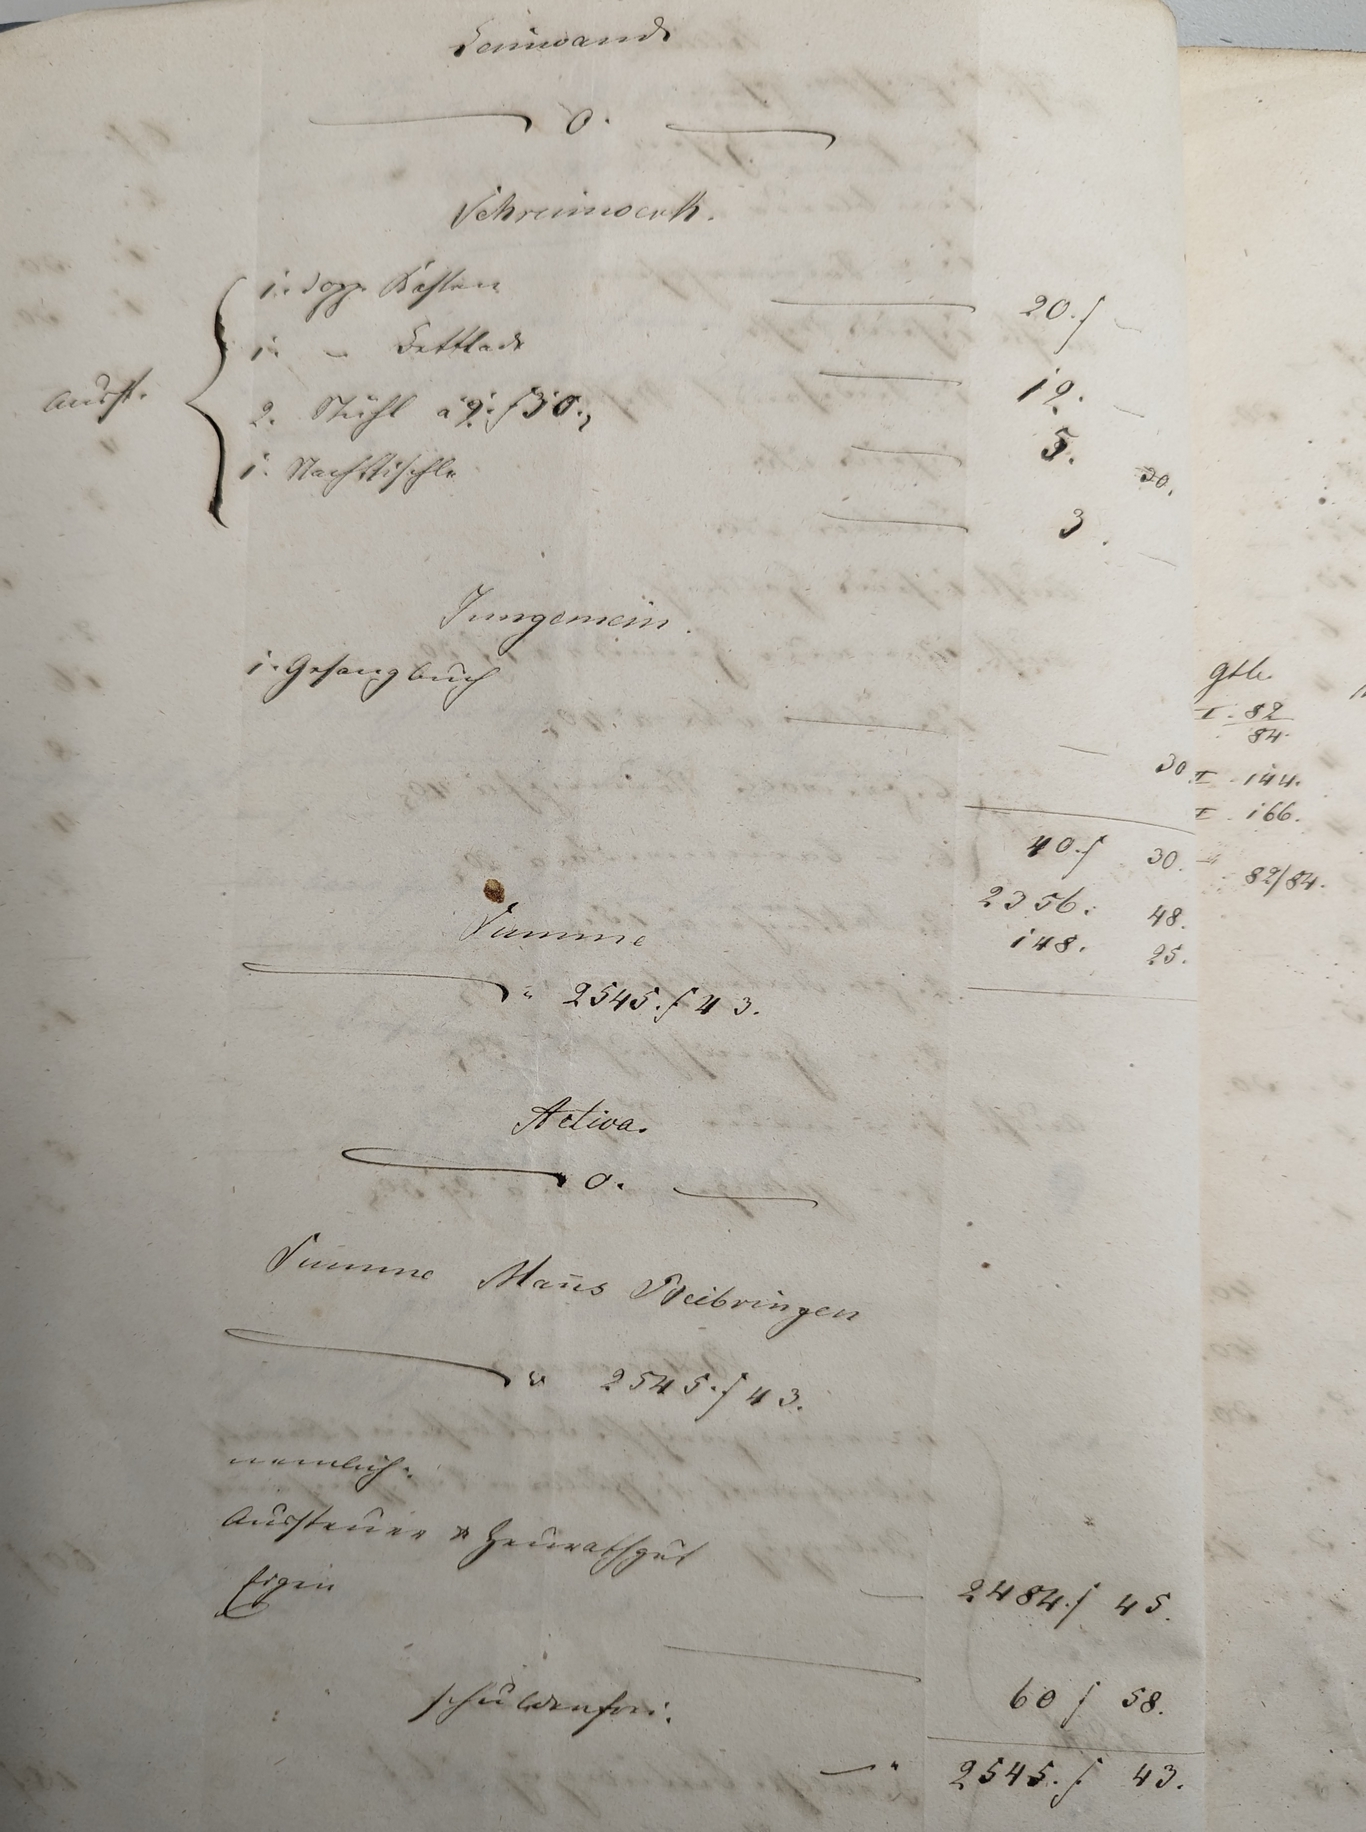 Leinwand
— 0. —
Schreinwerk.
1. dopp. Kasten — 20. f —
1. — Bettlade — 12. —
Ausst.
2. Stühl à 2. f 30. — 5. —
1. Nachttischle — 3. 30.
Inngemein.
1. Gesangbuch — — 30
40. f 30.
2356. 48.
148. 25.
Summe
— " 2545. f 43.
Activa.
— 0. —
Summe Mañs Beibringen
— " 2545. f 43.
nemlich:
Aussteuer & Heurathgut — 2484. f 45.
Eigen — 60 f 58.
schuldenfrei. — " 2545. f 43.
gth.
I. 82
84.
I. 144.
I. 166.
82/84.